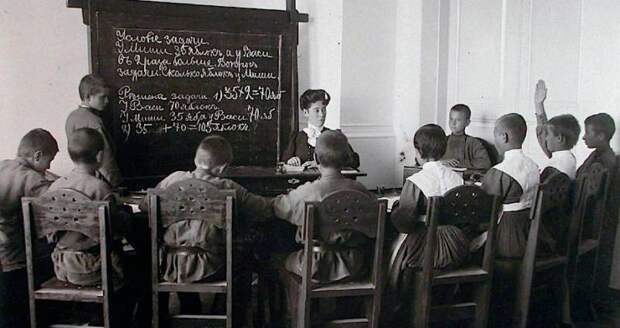 Условіе задачи.
У Миши 35 яблокъ, а у Васи
въ 2 раза больше. Вопросъ
задачи. Сколько яблок у Миши
Решение задачи 1) 35×2=70 яб
У Васи 70 яблокъ.
У Миши 35 яб а у Васи 70 яб
2) 35 +70=105 яблокъ.